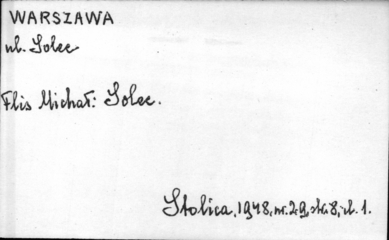 WARSZAWA
ul. Solec
Flis Michał: Solec.
Stolica, 1948, nr. 29, str. 8, il. 1.